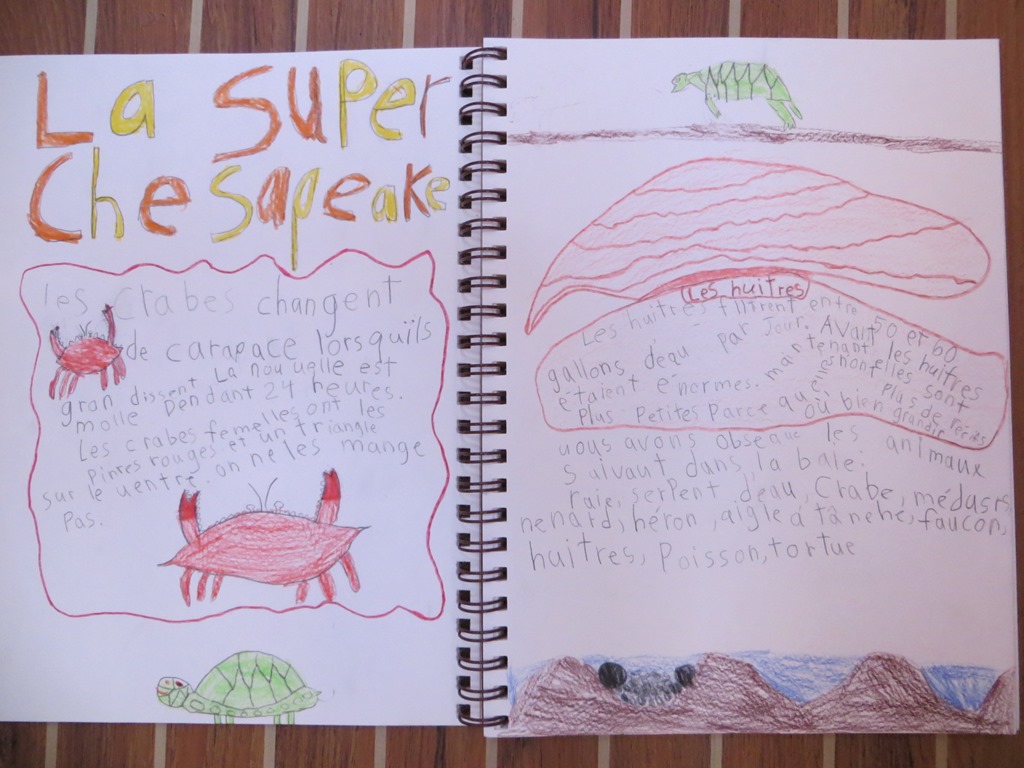 La Super
Chesapeake
les crabes changent
de carapace lorsqu'ils
grandissent La nouvelle est
molle pendant 24 heures.
Les crabes femelles ont les
pinces rouges et un triangle
sur le ventre. on ne les mange
pas.
Les huitres
Les huîtres filtrent entre 50 et 60
gallons d'eau par Jour. Avant les huîtres
étaient énormes. maintenant elles sont
Plus Petites Parce qu'elles n'ont Plus de récifs
où bien grandir
vous avons observe les animaux
Salvaut dans la baie:
raie, serpent d'eau, Crabe, méduses
renard, héron, aigle à tânehe, faucon,
huitres, Poisson, tortue